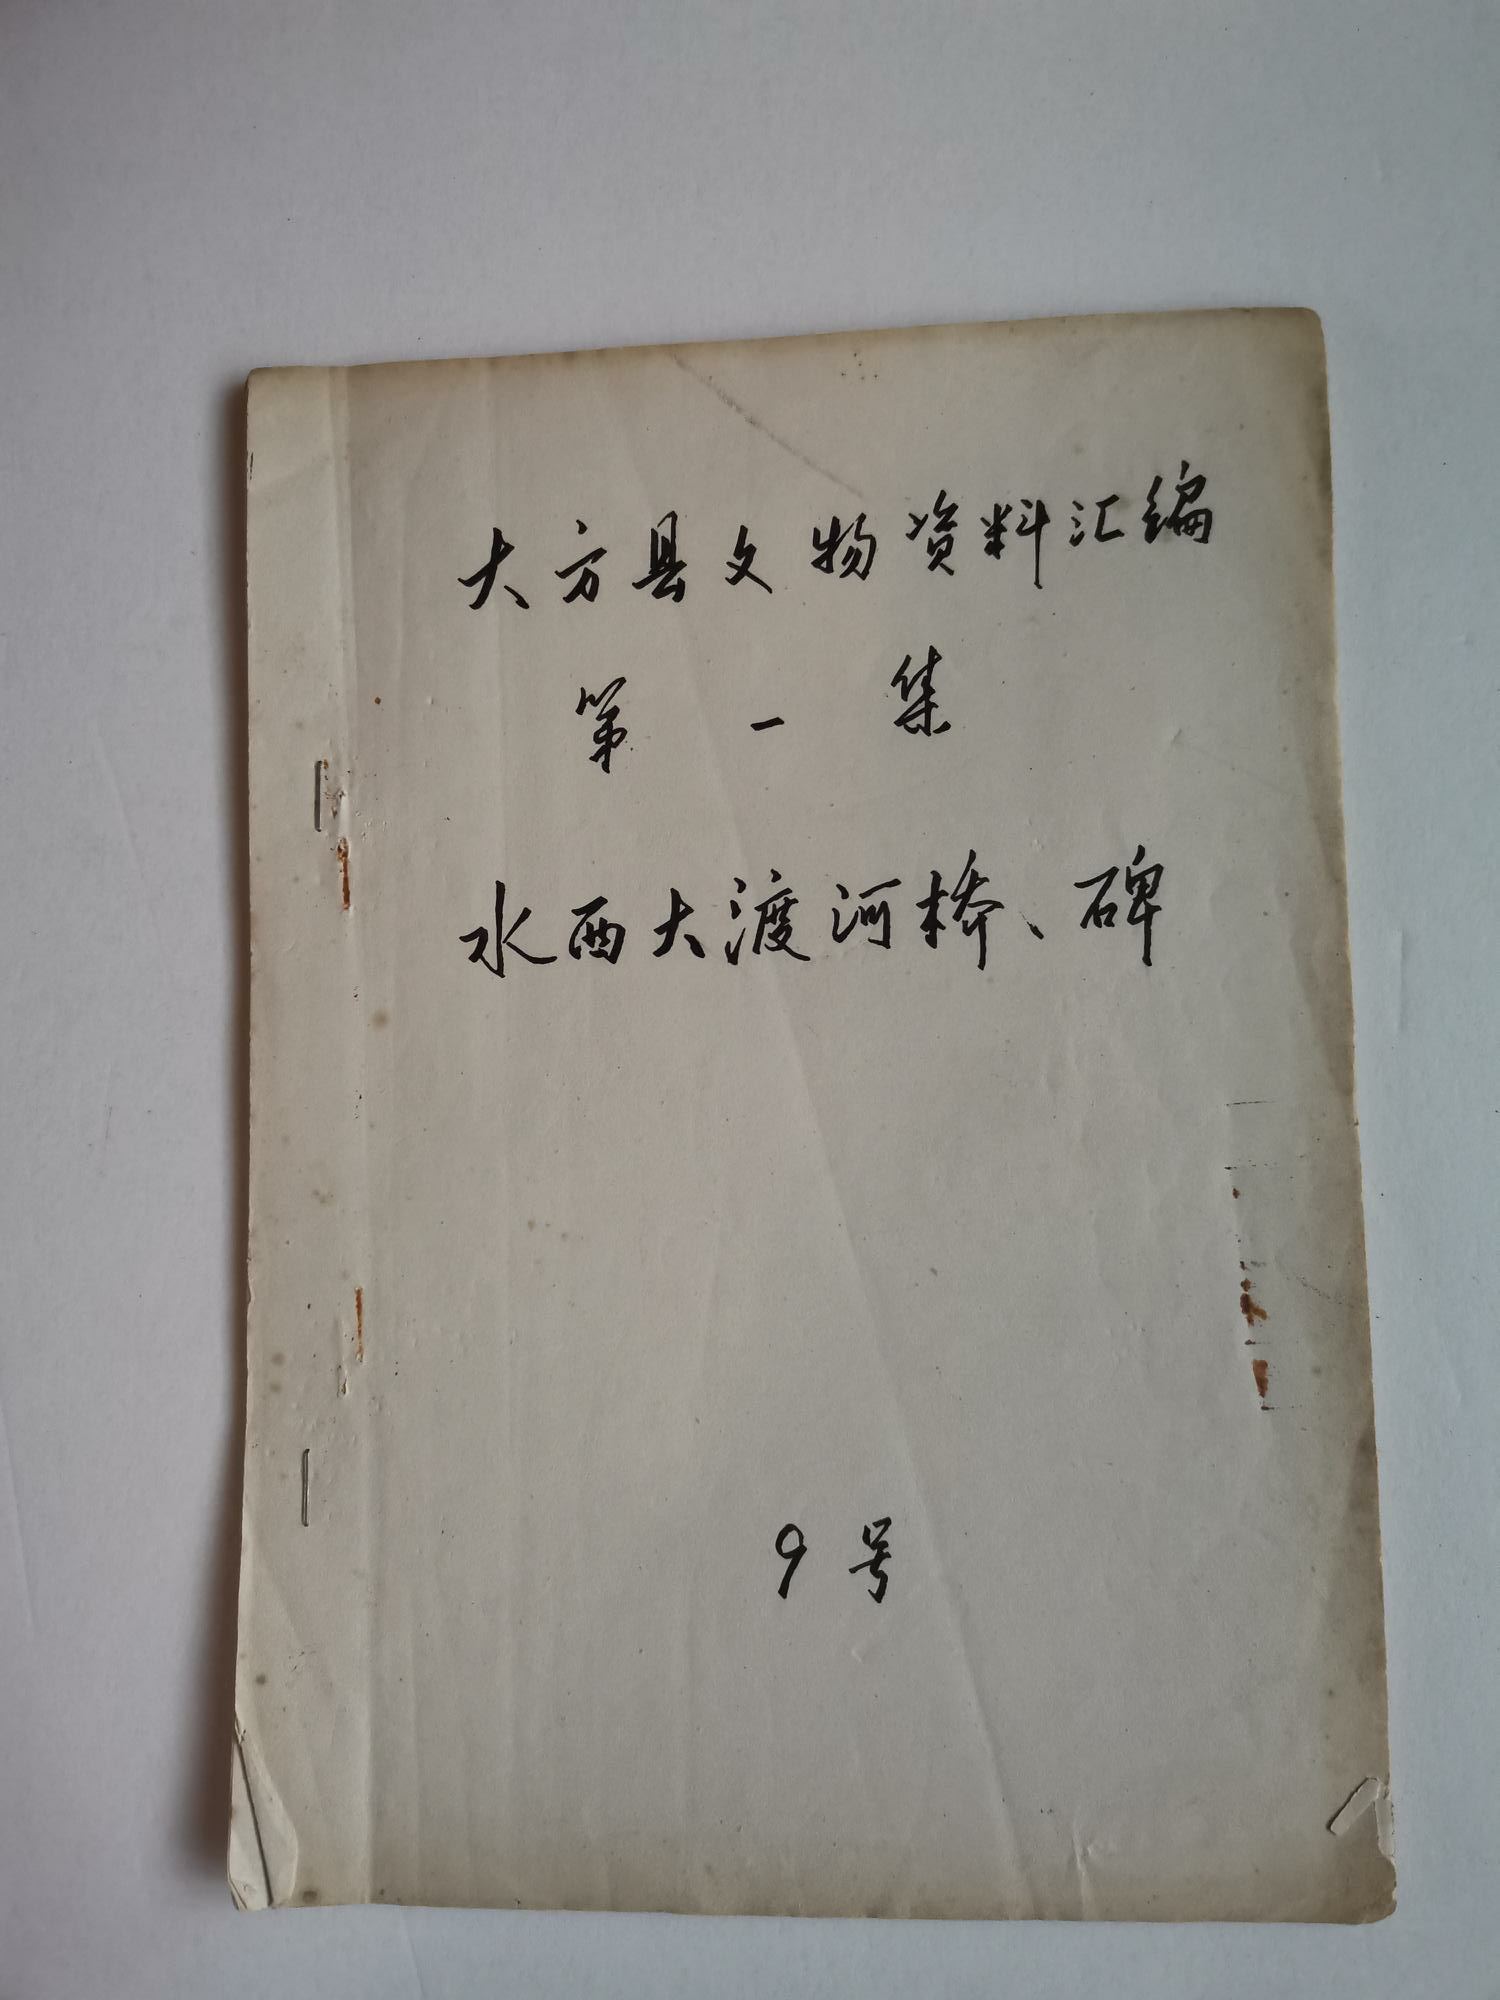 大方县文物资料汇编
第一集
水西大渡河桥、碑
9号